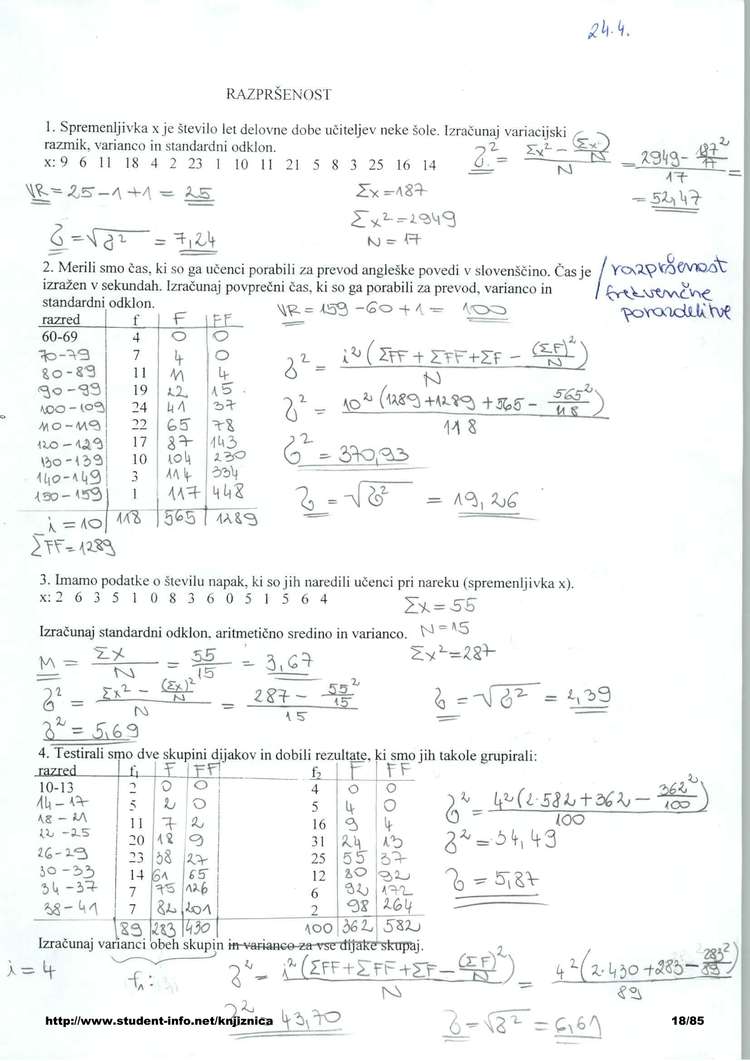 24.4.
RAZPRŠENOST
1. Spremenljivka x je število let delovne dobe učiteljev neke šole. Izračunaj variacijski
razmik, varianco in standardni odklon.
x: 9 6 11 18 4 2 23 1 10 11 21 5 8 3 25 16 14
σ² = (Σx² - (Σx)²/N) / N = (2949 - 187²/17) / 17 =
= 52,47
VR = 25 - 1 + 1 = 25
Σx = 187
Σx² = 2949
N = 17
σ = √σ² = 7,24
2. Merili smo čas, ki so ga učenci porabili za prevod angleške povedi v slovenščino. Čas je
izražen v sekundah. Izračunaj povprečni čas, ki so ga porabili za prevod, varianco in
standardni odklon.
razpršenost
frekvenčne
porazdelitve
VR = 159 - 60 + 1 = 100
razred f F FF
60-69 4 0 0
70-79 7 4 0
80-89 11 11 4
90-99 19 22 15
100-109 24 41 37
110-119 22 65 78
120-129 17 87 143
130-139 10 104 230
140-149 3 114 334
150-159 1 117 448
i = 10 118 565 1289
ΣFF = 1289
σ² = i² (ΣFF + ΣFF + ΣF - (ΣF)²/N) / N
σ² = 10² (1289 + 1289 + 565 - 565²/118) / 118
σ² = 370,93
σ = √σ² = 19,26
3. Imamo podatke o številu napak, ki so jih naredili učenci pri nareku (spremenljivka x).
x: 2 6 3 5 1 0 8 3 6 0 5 1 5 6 4
Σx = 55
Izračunaj standardni odklon, aritmetično sredino in varianco.
N = 15
Σx² = 287
M = Σx / N = 55 / 15 = 3,67
σ² = (Σx² - (Σx)²/N) / N = (287 - 55²/15) / 15
σ = √σ² = 2,39
σ² = 5,69
4. Testirali smo dve skupini dijakov in dobili rezultate, ki smo jih takole grupirali:
razred f₁ F FF f₂ F FF
10-13 2 0 0 4 0 0
14-17 5 2 0 5 4 0
18-21 11 7 2 16 9 4
22-25 20 18 9 31 24 13
26-29 23 38 27 25 55 37
30-33 14 61 65 12 80 92
34-37 7 75 126 6 92 172
38-41 7 82 201 2 98 264
89 283 430 100 362 582
σ² = 4² (2·582 + 362 - 362²/100) / 100
σ² = 34,49
σ = 5,87
Izračunaj varianci obeh skupin in varianco za vse dijake skupaj.
i = 4
f₁:
σ² = i² (ΣFF + ΣFF + ΣF - (ΣF)²/N) / N = 4² (2·430 + 283 - 283²/89) / 89
σ² 43,70
σ = √σ² = 6,61
http://www.student-info.net/knjiznica
18/85